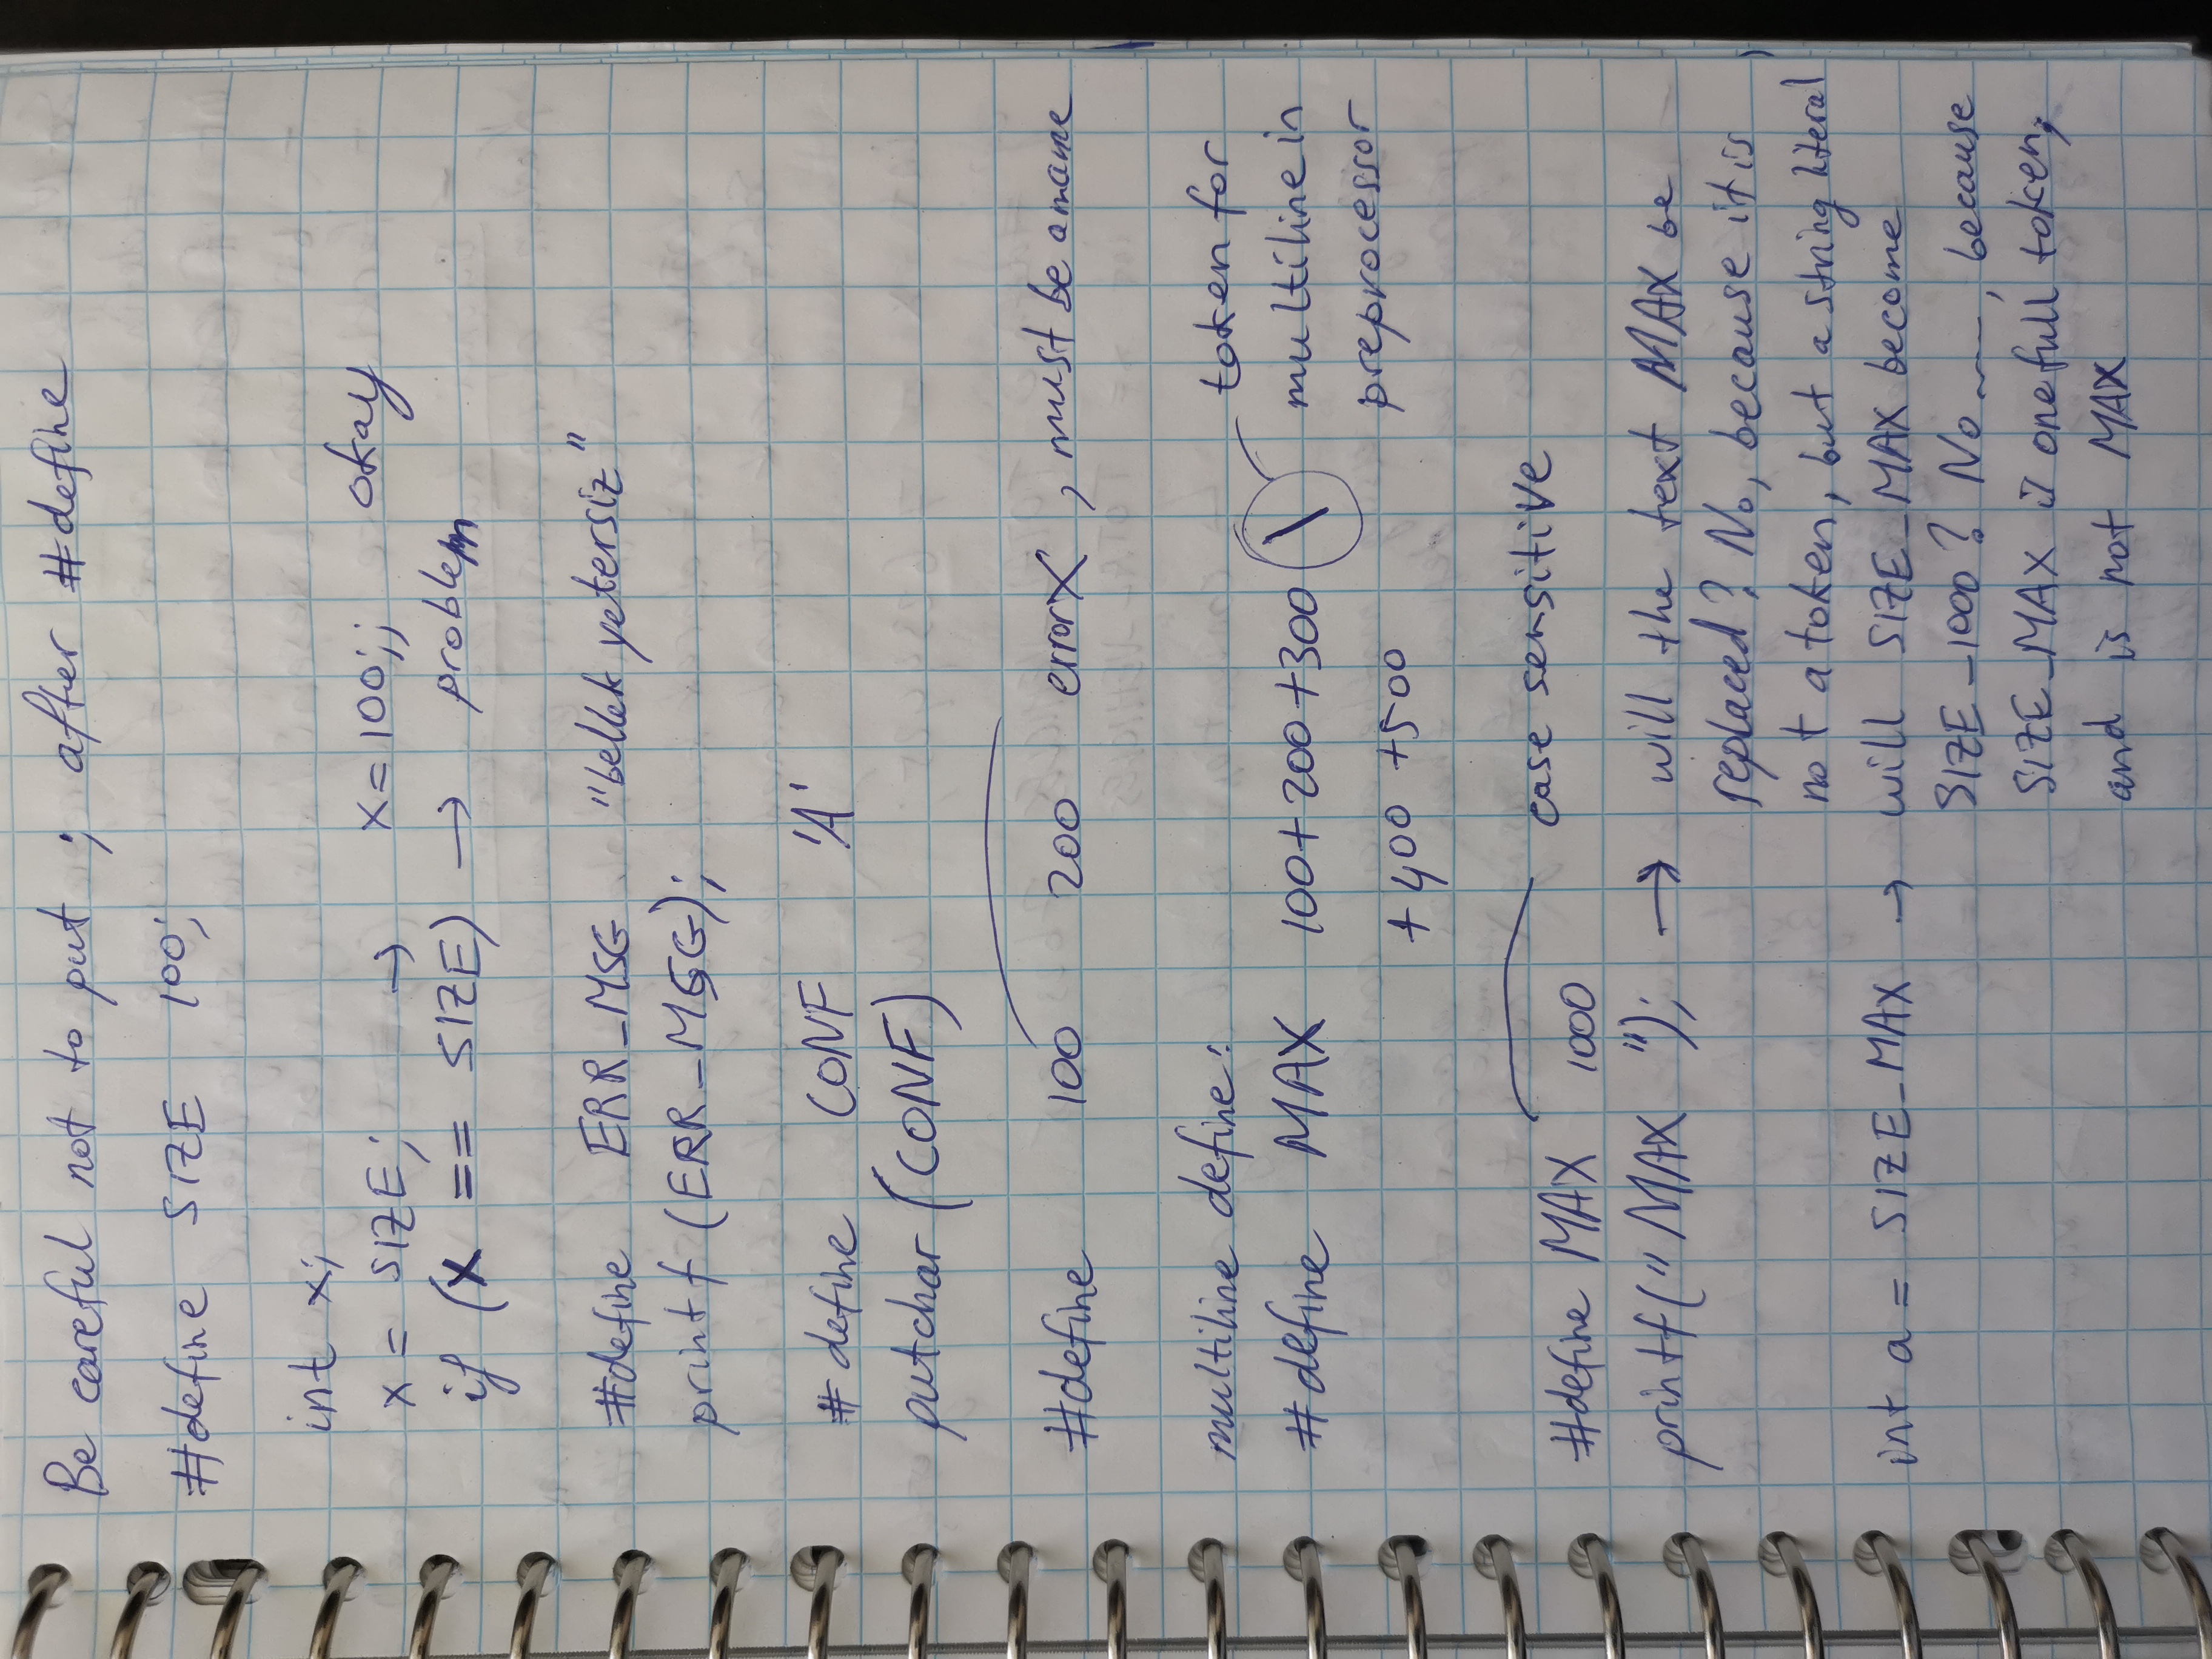 Be careful not to put ; after #define
#define SIZE 100;
int x;
x = SIZE; → x=100;; okay
if (x == SIZE) → problem
#define ERR_MSG "bellek yetersiz"
printf (ERR_MSG);
# define CONF 'A'
putchar (CONF)
#define 100 200 errorX , must be a name
multiline define:
#define MAX 100+200+300 \
+400 +500
token for
multiline in
preprocessor
#define MAX 1000 case sensitive
printf(" MAX "); → will the text MAX be
replaced? No, because it is
not a token, but a string literal
int a = SIZE_MAX → will SIZE_MAX become
SIZE_1000? No , because
SIZE_MAX is one full token,
and is not MAX